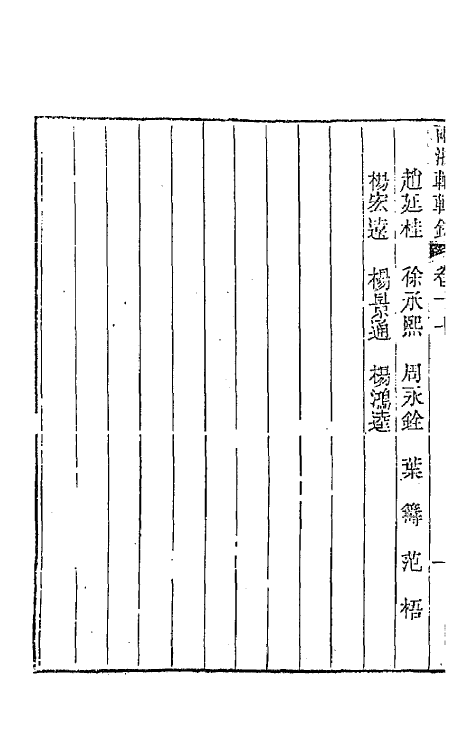 兩浙輶軒錄 卷二十
趙延桂 徐承熙 周永銓 葉 籌 范 梧
楊宏遠 楊景通 楊鴻逵